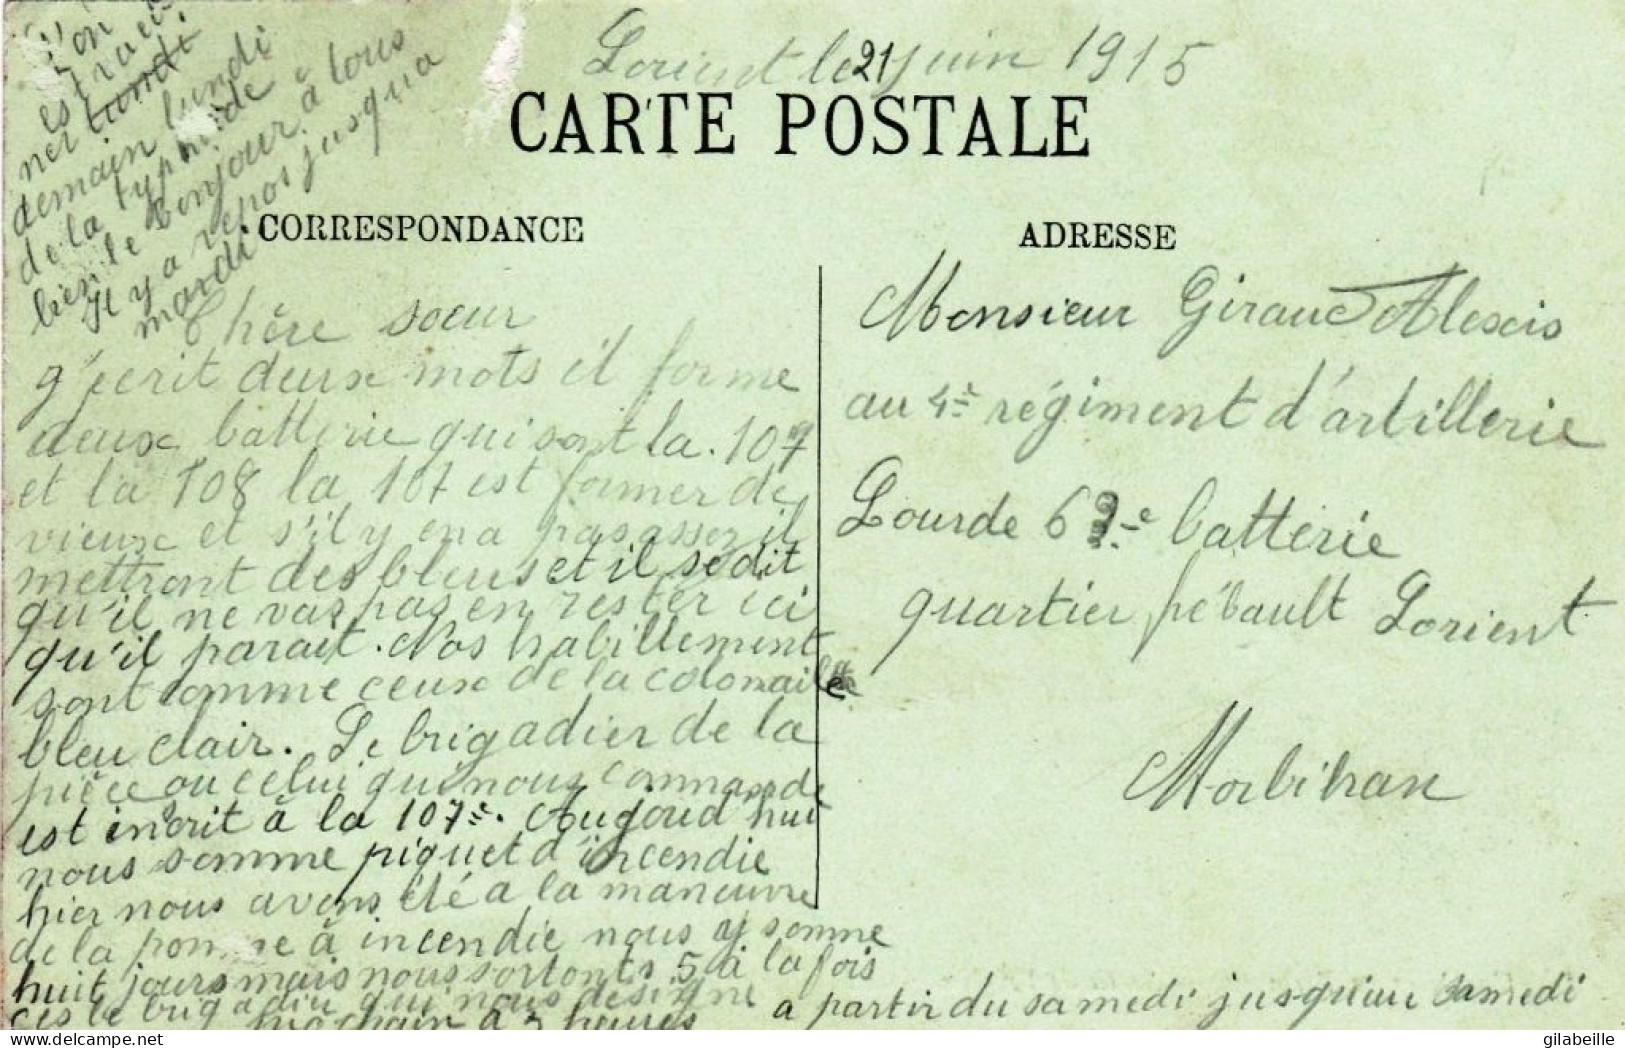 Lorient le 21 juin 1915
CARTE POSTALE
CORRESPONDANCE
ADRESSE
Chère soeur
g'ecrit deux mots il forme
deux batterie qui sont la . 107
et la 108 la 107 est former de
vieux et s'il y en a pas assez il
mettront des bleus et il se dit
qu'il ne vas pas en rester ici
qu'il parait . Nos habillement
sont comme ceux de la colonaile
bleu clair. Le brigadier de la
pièce ou celui qui nous commande
est inscrit à la 107è. Augourd'hui
nous somme piquet d'incendie
hier nous avons été a la maneuvre
de la pompe à incendie nous y somme
huit jours mais nous sortonts 5 à la fois
ces le brigadier qui nous designe
prochain a 5 heures
a partir du samedi jusqu'au samedi
l'on
est
net lundi
demain lundi
de la typhoide
bien le bonjour à tous
Il y a repos jusqua
mardi
Monsieur Giraud Alexis
au 4è régiment d'artillerie
Lourde 62e batterie
quartier frébault Lorient
Morbihan
gilabeille